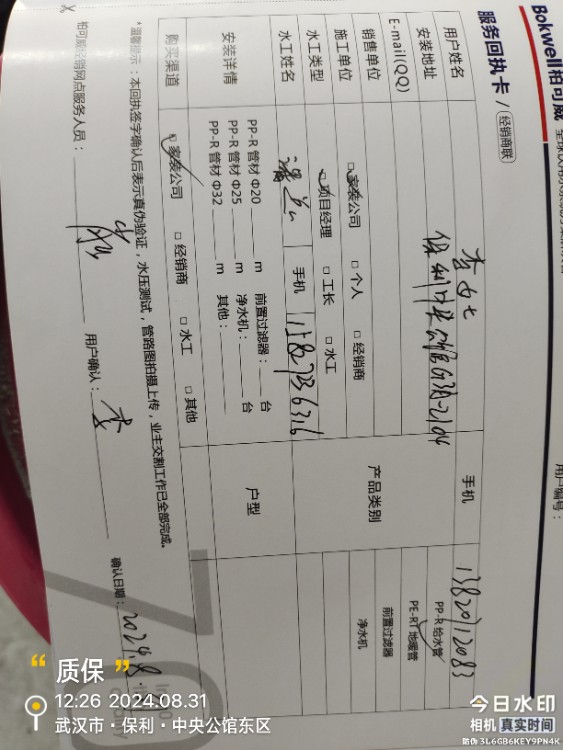 Bokwell柏可威
服务回执卡 / 经销商联
用户编号：
用户姓名 李女士 手机 13820712083
安装地址
E-mail(QQ)
产品类别 PP-R 给水管
PE-RT 地暖管
前置过滤器
净水机
销售单位 家装公司 □ 个人 □ 经销商
施工单位 项目经理 □ 工长 □ 水工
水工类型
水工姓名 手机
安装详情 PP-R 管材 Φ20 m 前置过滤器： 台
PP-R 管材 Φ25 m 净水机： 台
PP-R 管材 Φ32 m 其他：
户型
购买渠道 家装公司 □ 经销商 □ 水工 □ 其他
*温馨提示：本回执签字确认后表示真伪验证，水压测试，管路图拍摄上传，业主交割工作已全部完成。
柏可威经销网点服务人员： 用户确认：李 确认日期：2024.8.
“ 质保 ”
12:26 2024.08.31
武汉市·保利·中央公馆东区
今日水印
相机 真实时间
防伪 3L6GB6KEY9PN4K